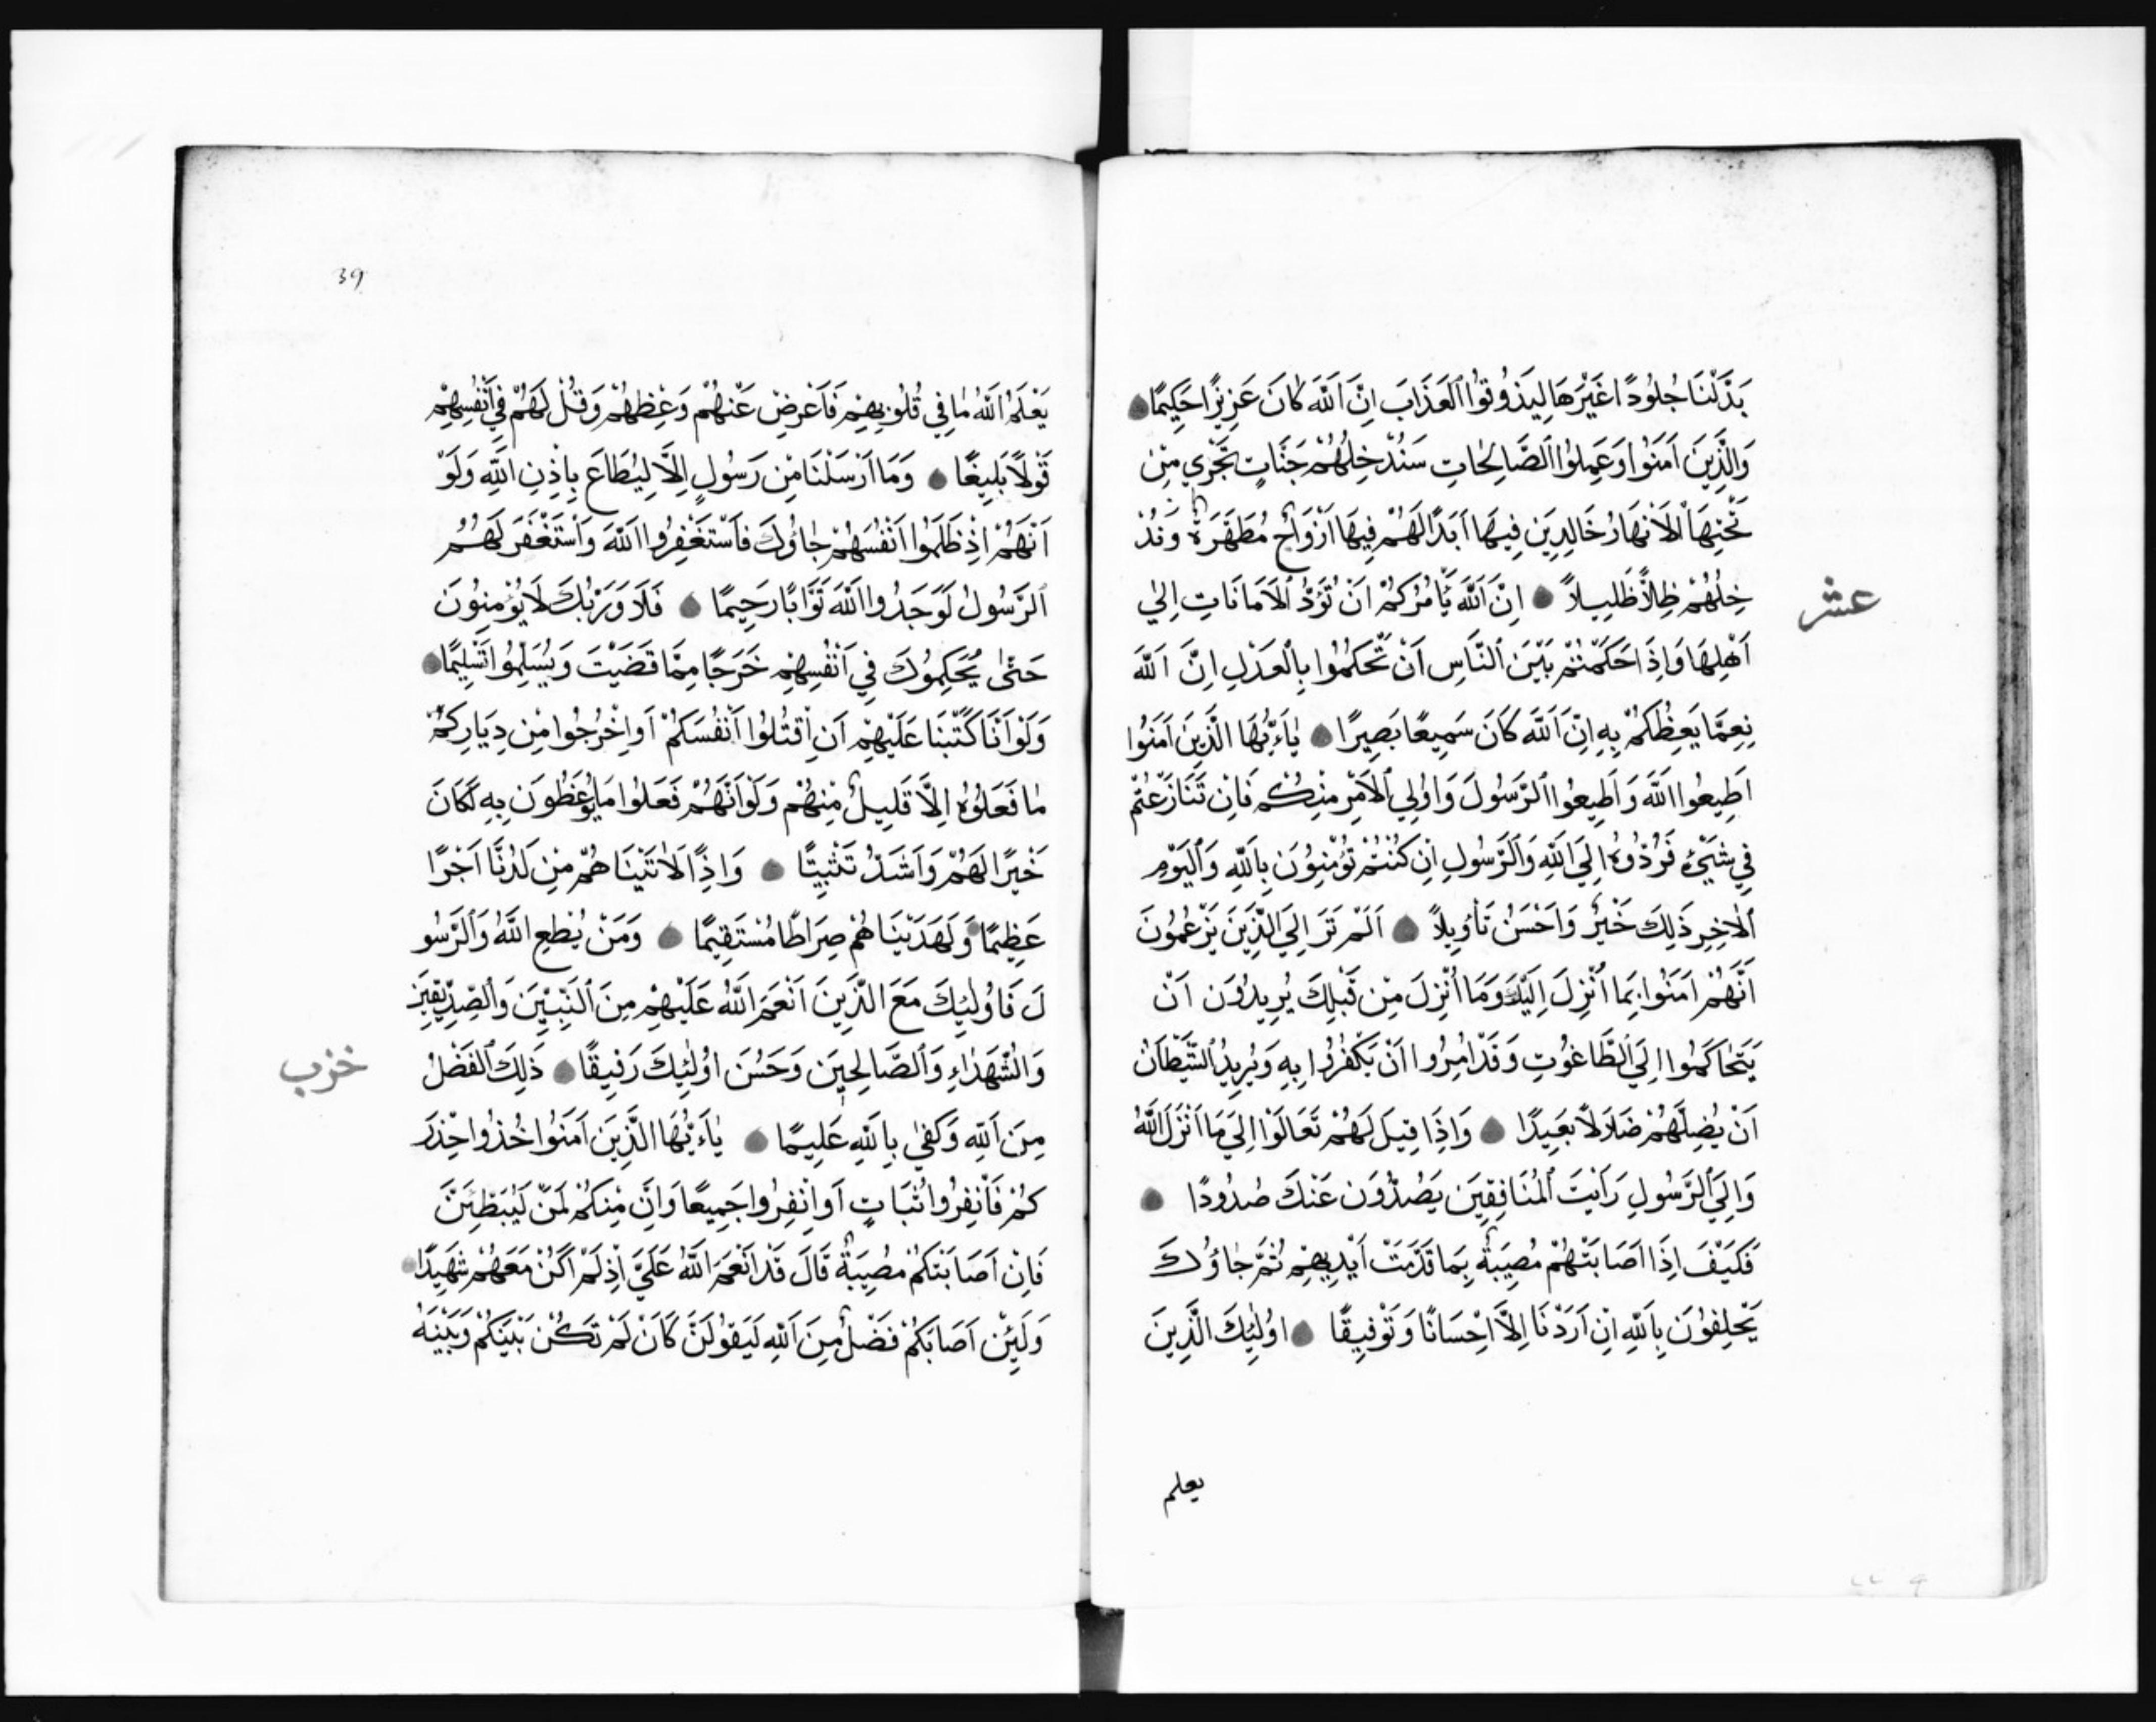 بَدَّلْنَا جُلُودًا غَيْرَهَا لِيَذُوقُوا ٱلْعَذَابَ اِنَّ اَللّٰهَ كَانَ عَزِيزًا حَكِيمًا
وَالَّذِينَ اٰمَنُوا وَعَمِلُوا ٱلصَّالِحَاتِ سَنُدْخِلُهُمْ جَنَّاتٍ تَجْرِي مِنْ
تَحْتِهَا ٱلْاَنْهَارُ خَالِدِينَ فِيهَا اَبَدًا لَهُمْ فِيهَا اَزْوَاجٌ مُطَهَّرَةٌ وَنُدْ
خِلُهُمْ ظِلاًّ ظَلِيلاً اِنَّ اَللّٰهَ يَأْمُرُكُمْ اَنْ تُؤَدُّ ٱلْاَمَانَاتِ اِلٰي
عشر
اَهْلِهَا وَاِذَا حَكَمْتُمْ بَيْنَ ٱلنَّاسِ اَنْ تَحْكُمُوا بِالْعَدْلِ اِنَّ اَللّٰهَ
نِعِمَّا يَعِظُكُمْ بِهِ اِنَّ اَللّٰهَ كَانَ سَمِيعًا بَصِيرًا يٰاَءَيُّهَا الَّذِينَ اٰمَنُوا
اَطِيعُوا اللّٰهَ وَاَطِيعُوا ٱلرَّسُولَ وَاُولِي ٱلْاَمْرِ مِنْكُمْ فَاِنْ تَنَازَعْتُمْ
فِي شَيْءٍ فَرُدُّوهُ اِلَي اللّٰهِ وَٱلرَّسُولِ اِنْ كُنْتُمْ تُؤْمِنُونَ بِاللّٰهِ وَٱلْيَوْمِ
ٱلْاٰخِرِ ذَلِكَ خَيْرٌ وَاَحْسَنُ تَأْوِيلاً اَلَمْ تَرَ اِلَي الَّذِينَ يَزْعُمُونَ
اَنَّهُمْ اٰمَنُوا بِمَا اُنْزِلَ اِلَيْكَ وَمَا اُنْزِلَ مِنْ قَبْلِكَ يُرِيدُونَ اَنْ
يَتَحَاكَمُوا اِلَي ٱلطَّاغُوتِ وَقَدْ اُمِرُوا اَنْ يَكْفُرُوا بِهِ وَيُرِيدُ ٱلشَّيْطَانُ
اَنْ يُضِلَّهُمْ ضَلَالاً بَعِيدًا وَاِذَا قِيلَ لَهُمْ تَعَالَوْا اِلَي مَا اَنْزَلَ اللّٰهُ
وَاِلَي ٱلرَّسُولِ رَاَيْتَ ٱلْمُنَافِقِينَ يَصُدُّونَ عَنْكَ صُدُودًا
فَكَيْفَ اِذَا اَصَابَتْهُمْ مُصِيبَةٌ بِمَا قَدَّمَتْ اَيْدِيهِمْ ثُمَّ جٰاؤُكَ
يَحْلِفُونَ بِاَللّٰهِ اِنْ اَرَدْنَا اِلاَّ اِحْسَانًا وَتَوْفِيقًا اُولٰئِكَ الَّذِينَ
يعلم
39
يَعْلَمُ اللّٰهُ مٰا فِي قُلُوبِهِمْ فَاَعْرِضْ عَنْهُمْ وَعِظْهُمْ وَقُلْ لَهُمْ فِي اَنْفُسِهِمْ
قَوْلاً بَلِيغًا وَمَا اَرْسَلْنَا مِنْ رَسُولٍ اِلاَّ لِيُطَاعَ بِاِذْنِ اَللّٰهِ وَلَوْ
اَنَّهُمْ اِذْ ظَلَمُوا اَنْفُسَهُمْ جٰاؤُكَ فَاسْتَغْفِرُوا اَللّٰهَ وَاسْتَغْفَرَ لَهُمُ
ٱلرَّسُولُ لَوَجَدُوا اللّٰهَ تَوَّابًا رَحِيمًا فَلَا وَرَبِّكَ لَا يُؤْمِنُونَ
حَتّٰى يُحَكِّمُوكَ فِي اَنْفُسِهِمْ حَرَجًا مِمَّا قَضَيْتَ وَيُسَلِّمُوا تَسْلِيمًا
وَلَوْ اَنَّا كَتَبْنَا عَلَيْهِمْ اَنِ اقْتُلُوا اَنْفُسَكُمْ اَوِ اخْرُجُوا مِنْ دِيَارِكُمْ
مٰا فَعَلُوهُ اِلاَّ قَلِيلٌ مِنْهُمْ وَلَوْ اَنَّهُمْ فَعَلُوا مَا يُوعَظُونَ بِهِ لَكَانَ
خَيْرًا لَهُمْ وَاَشَدَّ تَثْبِيتًا وَاِذًا لَاٰتَيْنَاهُمْ مِنْ لَدُنَّا اَجْرًا
عَظِيمًا وَلَهَدَيْنَاهُمْ صِرَاطًا مُسْتَقِيمًا وَمَنْ يُطِعِ اللّٰهُ وَٱلرَّسُو
لَ فَاُولٰئِكَ مَعَ الَّذِينَ اَنْعَمَ اللّٰهُ عَلَيْهِمْ مِنَ ٱلنَّبِيِّينَ وَٱلصِّدِّيقِينَ
وَالشُّهَدَاءِ وَٱلصَّالِحِينَ وَحَسُنَ اُولٰئِكَ رَفِيقًا ذَلِكَ ٱلْفَضْلُ
خزب
مِنَ اَللّٰهِ وَكَفٰي بِاللّٰهِ عَلِيمًا يٰاَءَيُّهَا الَّذِينَ اٰمَنُوا خُذُوا حِذْرَ
كُمْ فَانْفِرُوا ثُبَاتٍ اَوِ انْفِرُوا جَمِيعًا وَاِنَّ مِنْكُمْ لَمَنْ لَيُبَطِّئَنَّ
فَاِنْ اَصَابَتْكُمْ مُصِيبَةٌ قَالَ قَدْ اَنْعَمَ اللّٰهُ عَلَيَّ اِذْ لَمْ اَكُنْ مَعَهُمْ شَهِيدًا
وَلَئِنْ اَصَابَكُمْ فَضْلٌ مِنَ اَللّٰهِ لَيَقُولَنَّ كَاَنْ لَمْ تَكُنْ بَيْنَكُمْ وَبَيْنَهُ